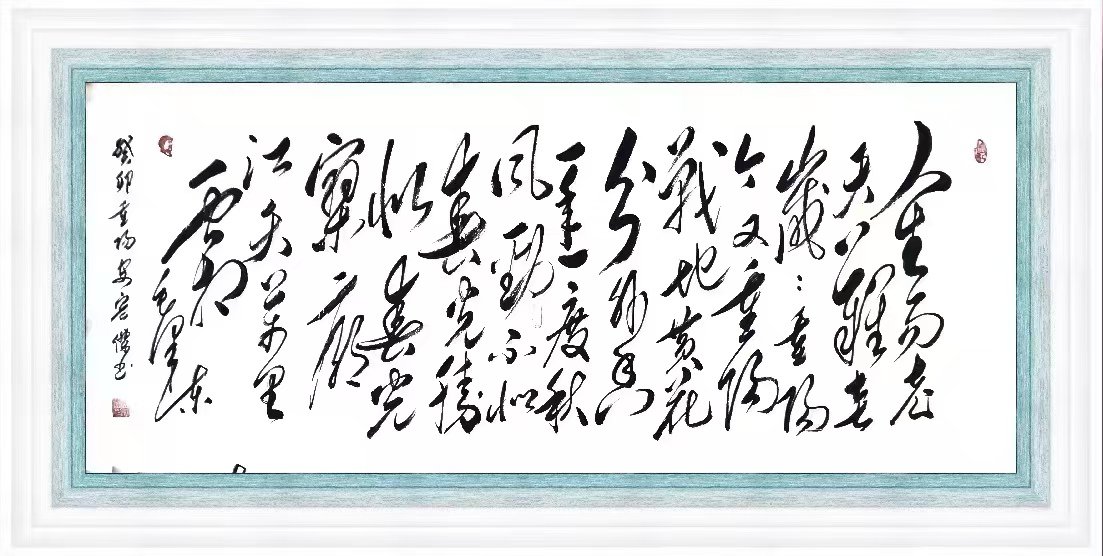 人生易老
天难老
岁岁重阳
今又重阳
战地黄花
分外香
一年一度秋
风劲不似
春光胜
似春光
寥廓
江天万里
霜
毛泽东
癸卯重阳 书